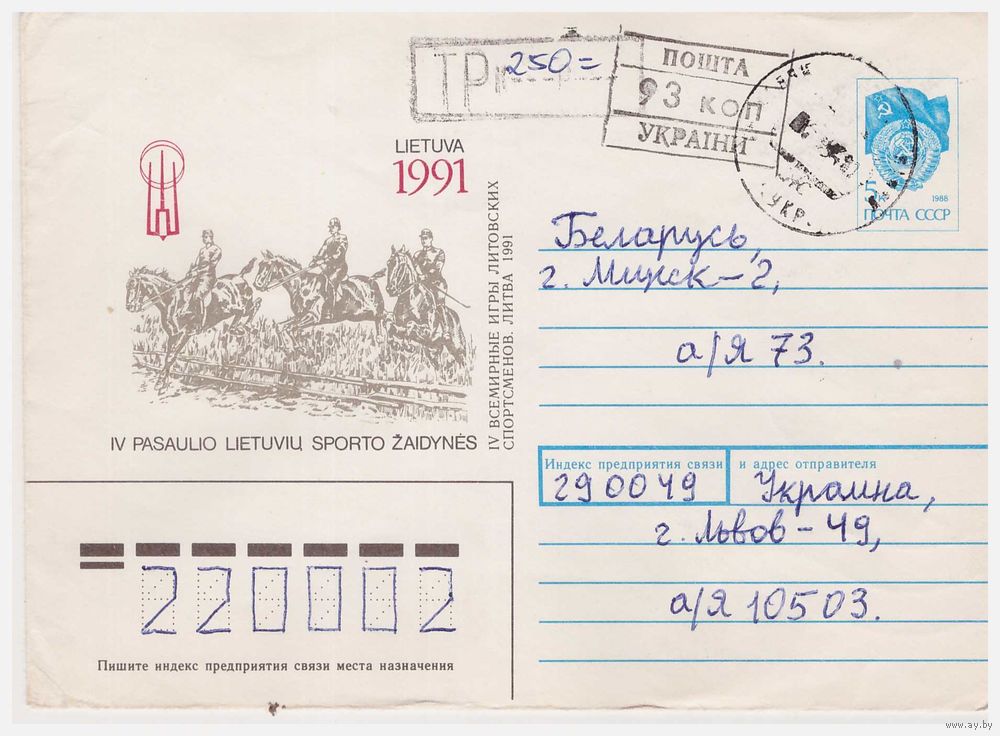 ТР 250=
ПОШТА
93 коп
УКРАЇНИ
УКР.
LIETUVA
1991
5к
1988
ПОЧТА СССР
IV ВСЕМИРНЫЕ ИГРЫ ЛИТОВСКИХ
СПОРТСМЕНОВ. ЛИТВА 1991
IV PASAULIO LIETUVIŲ SPORTO ŽAIDYNĖS
Беларусь,
г. Минск-2,
а/я 73.
Индекс предприятия связи и адрес отправителя
290049 Украина,
г. Львов-49,
а/я 10503.
220002
Пишите индекс предприятия связи места назначения
www.ay.by